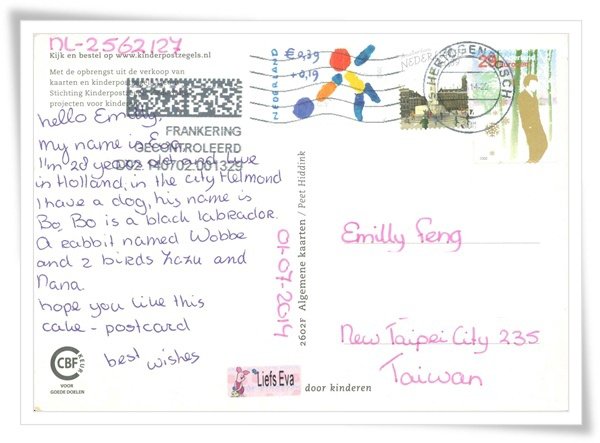 NL-2562127
Kijk en bestel op www.kinderpostzegels.nl
Met de opbrengst uit de verkoop van
kaarten en kinderpostzegels
Stichting Kinderpostzegels
projecten voor kinderen
FRANKERING
GECONTROLEERD
D02 140702.001329
hello Emilly,
my name is Eva.
I'm 28 years old and live
in Holland, in the city Helmond
I have a dog, his name is
Bo. Bo is a black labrador.
A rabbit named Wobbe
and 2 birds Zazu and
Nana.
hope you like this
cake - postcard
best wishes
CBF
KEUR
VOOR
GOEDE DOELEN
Liefs Eva
door kinderen
01-07-2014
2602F Algemene kaarten / Peet Hiddink
NEDERLAND
€ 0,39
+0,19
NEDERLAND
HERTOGENBOSCH
29
Emilly Feng
New Taipei City 235
Taiwan